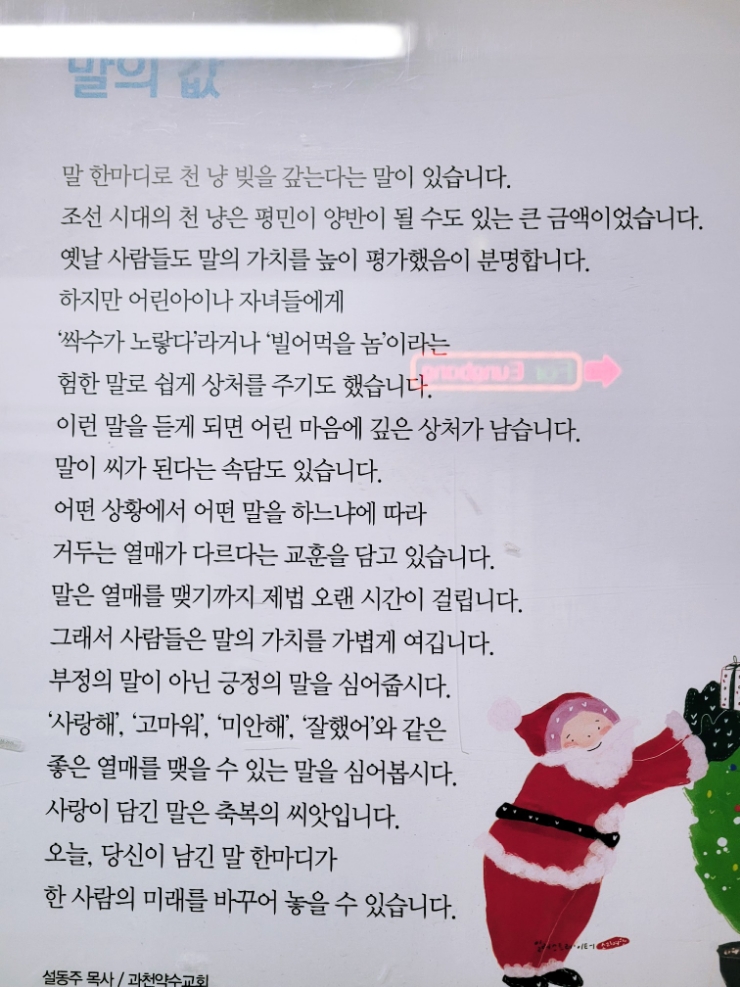 말의 값
말 한마디로 천 냥 빚을 갚는다는 말이 있습니다.
조선 시대의 천 냥은 평민이 양반이 될 수도 있는 큰 금액이었습니다.
옛날 사람들도 말의 가치를 높이 평가했음이 분명합니다.
하지만 어린아이나 자녀들에게
‘싹수가 노랗다’라거나 ‘빌어먹을 놈’이라는
험한 말로 쉽게 상처를 주기도 했습니다.
For Eungbong
이런 말을 듣게 되면 어린 마음에 깊은 상처가 남습니다.
말이 씨가 된다는 속담도 있습니다.
어떤 상황에서 어떤 말을 하느냐에 따라
거두는 열매가 다르다는 교훈을 담고 있습니다.
말은 열매를 맺기까지 제법 오랜 시간이 걸립니다.
그래서 사람들은 말의 가치를 가볍게 여깁니다.
부정의 말이 아닌 긍정의 말을 심어줍시다.
‘사랑해’, ‘고마워’, ‘미안해’, ‘잘했어’와 같은
좋은 열매를 맺을 수 있는 말을 심어봅시다.
사랑이 담긴 말은 축복의 씨앗입니다.
오늘, 당신이 남긴 말 한마디가
한 사람의 미래를 바꾸어 놓을 수 있습니다.
설동주 목사 / 과천약수교회